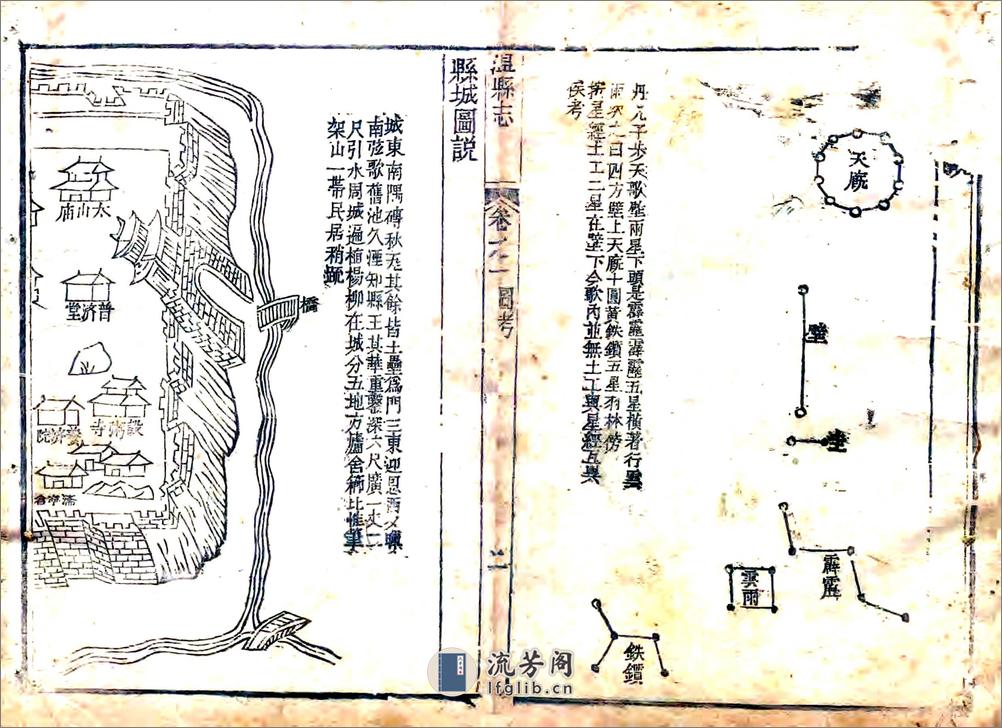 天廄
壁
土
霹靂
雲雨
鉄鑕
丹元子步天歌壁兩星下頭是霹靂霹靂五星橫著行雲
雨次之曰四方壁上天廄十圓黃鉄鑕五星羽林傍
按星經土工二星在壁下今歌內並無土工與星經互異
俟考
溫縣志
卷之一
圖考
二
縣城圖說
城東南隅磚秋 其餘皆土壘爲門三東迎恩西 
南弦歌舊池久湮知縣王其華重鑿深六尺廣一丈二
尺引水周城遍植楊柳在城分五地方廬舍稱比惟筆
架山一帶民居稍
橋
太山廟
普濟堂
設濟寺
養濟院
常平倉
流芳阁
lfglib.cn